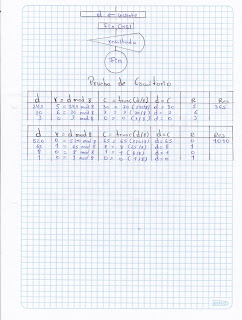 d ← cociente
resultado
Fin
Prueba de Escritorio
d r = d mod 8 C = trunc (d/8) d = C R Res
245 5 = 245 mod 8 30 = 30 (245/8) d = 30 5 365
30 6 = 30 mod 8 3 = 3 (30/8) d = 3 6
3 3 mod 8 0 = 0 (3/8) d = 0 3
d r = d mod 8 C = trunc (d/8) d = C R Res
520 0 = 520 mod 8 65 = 65 (520/8) d = 65 0 1010
65 1 = 65 mod 8 8 = 8 (65/8) d = 8 1
8 0 = 8 mod 8 1 = 1 (8/8) d = 1 0
1 mod 8 0 = 0 (1/8) d = 0 1